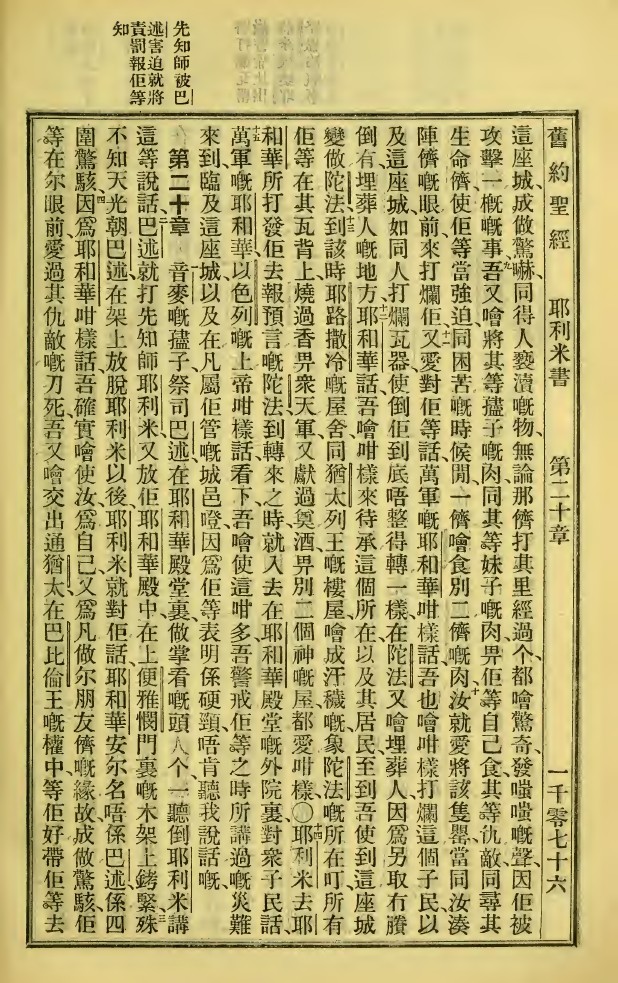 舊約聖經 耶利米書 第二十章 一千零七十六
這座城、成做驚嚇、同得人褻瀆嘅物、無論那儕打其里經過个、都噲驚奇、發嗤嗤嘅聲、因佢被
攻擊一概嘅事、九吾又噲將其等孻子嘅肉、同其等妹子嘅肉、畀佢等自己食、其等仇敵、同尋其
生命儕、使佢等當強迫同困苦嘅時候、閒一儕噲食別二儕嘅肉、十汝就愛將該隻罌、當同汝湊
陣儕嘅眼前、來打爛佢、十一又愛對佢等話、萬軍嘅耶和華咁樣話、吾也噲咁樣打爛這個子民、以
及這座城、如同人打爛瓦器、使倒佢到底唔整得轉一樣、在陀法又噲埋葬人、因爲另取冇賸
倒有埋葬人嘅地方、十二耶和華話、吾噲咁樣來待承這個所在、以及其居民、至到吾使到這座城
變做陀法、十三到該時耶路撒冷嘅屋舍、同猶太列王嘅樓屋、噲成汙穢嘅、象陀法嘅所在、叮所有
佢等在其瓦背上燒過香畀衆天軍、又獻過奠酒畀別二個神嘅屋、都愛咁樣、〇十四耶利米去耶
和華所打發佢去報預言嘅陀法、到轉來之時、就入去在耶和華殿堂嘅外院裏、對衆子民話、
十五萬軍嘅耶和華、以色列嘅上帝咁樣話、看下、吾噲使這咁多吾警戒佢等之時所講過嘅災難
來到、臨及這座城、以及在凡屬佢管嘅城邑噔、因爲佢等表明係硬頸、唔肯聽我說話嘅、
第二十章 一音麥嘅孻子祭司巴述、在耶和華殿堂裏做掌看嘅頭人个、一聽倒耶利米講
這等說話、二巴述就打先知師耶利米、又放佢耶和華殿中、在上便雅憫門裏嘅木架上銬緊、三殊
不知天光朝、巴述在架上放脫耶利米以後、耶利米就對佢話、耶和華安尔名、唔係巴述、係四
圍驚駭、四因爲耶和華咁樣話、吾確實噲使汝、爲自己、又爲凡做尔朋友儕嘅緣故、成做驚駭、佢
等在尔眼前、愛過其仇敵嘅刀死、吾又噲交出通猶太、在巴比倫王嘅權中、等佢好帶佢等去
先知師被巴
述害迫就將
責罰報佢等
知